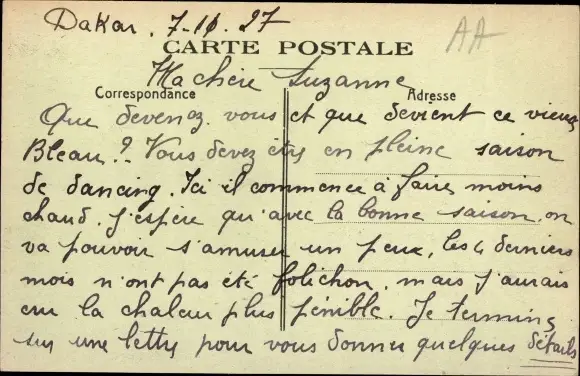 Dakar. 7-10.27
AA
CARTE POSTALE
Ma chère Suzanne
Correspondance
Adresse
Que devenez vous et que devient ce vieux
Bleau? Vous devez être en pleine saison
de dancing. Ici il commence à faire moins
chaud. J'espère qu'avec la bonne saison on
va pouvoir s'amuser un peu, les 4 derniers
mois n'ont pas été folichon, mais j'aurais
cru la chaleur plus pénible. Je termine
sur une lettre pour vous donner quelques détails